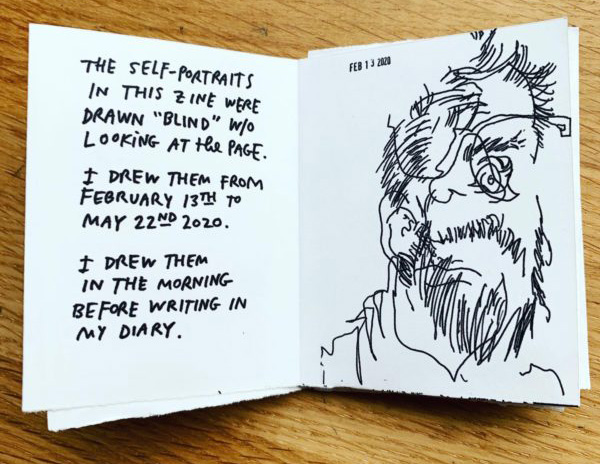 THE SELF-PORTRAITS
IN THIS ZINE WERE
DRAWN "BLIND" W/O
LOOKING AT the PAGE.
I DREW THEM FROM
FEBRUARY 13TH TO
MAY 22ND 2020.
I DREW THEM
IN THE MORNING
BEFORE WRITING IN
MY DIARY.
FEB 13 2020